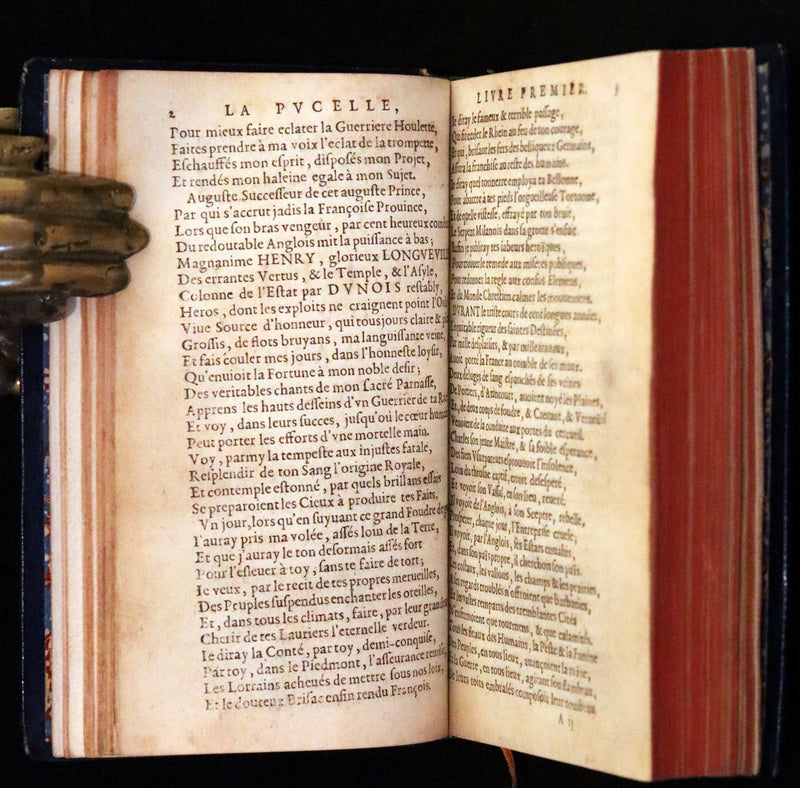 2 LA PVCELLE,
Pour mieux faire eclater la Guerriere Houlette,
Faites prendre à ma voix l'eclat de la trompette,
Eschauffés mon esprit, disposés mon Projet,
Et rendés mon haleine egale à mon Sujet.
Auguste Successeur de cet auguste Prince,
Par qui s'accrut jadis la Françoise Prouince,
Lors que son bras vengeur, par cent heureux
Du redoutable Anglois mit la puissance à bas;
Magnanime HENRY, glorieux LONGVEVIL
Des errantes Vertus, & le Temple, & l'Asyle,
Colonne de l'Estat par DVNOIS restably,
Heros, dont les exploits ne craignent point
Viue Source d'honneur, qui tousjours claire &
Grossis, de flots bruyans, ma languissante veine,
Et fais couler mes jours, dans l'honneste loysir,
Qu'enuioit la Fortune à mon noble desir;
Des veritables chants de mon sacré Parnasse,
Apprens les hauts desseins d'vn Guerrier de ta
Et voy, dans leurs succes, jusqu'où le cœur
Peut porter les efforts d'vne mortelle main.
Voy, parmy la tempeste aux injustes fatale,
Resplendir de ton Sang l'origine Royale,
Et contemple estonné, par quels brillans essais
Se preparoient les Cieux à produire tes Faits.
Vn jour, lors qu'en suyuant ce grand Foudre de
I'auray pris ma volée, assés loin de la Terre,
Et que j'auray le ton desormais assés fort
Pour l'esleuer à toy, sans te faire de tort;
Ie veux, par le recit de tes propres merueilles,
Des Peuples suspendus enchanter les oreilles,
Et, dans tous les climats, faire, par leur
Cherir de tes Lauriers l'eternelle verdeur.
Ie diray la Conté, par toy, demi-conquise,
Par toy, dans le Piedmont, l'asseurance remise,
Les Lorrains acheués de mettre sous nos loix,
Et le douteux Brisac enfin rendu François.
LIVRE PREMIER. 3
Ie diray le fameux & terrible passage,
Qui fit ceder le Rhein au feu de ton courage,
Et qui, brisant les fers des belliqueux Germains,
la franchise au reste des humains.
Ie diray quel tonnerre employa ta Bellonne,
Pour abattre à tes pieds l'orgueilleuse Tortonne,
Et de quelle vistesse, effrayé par ton bruit,
Le Serpent Milanois dans sa grotte s'enfuit.
Enfin je publiray tes labeurs heroïques,
Pour trouuer le remede aux miseres publiques,
Pour redonner la regle aux confus Elemens,
Et du Monde Chrestien calmer les mouuemens.
DVRANT le triste cours de cent longues années,
L'equitable rigueur des saintes Destinées,
Par mille desplaisirs, & par mille trauaux,
Auoit porté la France au comble de ses maux.
Deux deluges de sang espanchés de ses veines
De Poitiers, d'Azincourt, auoient noyé les Plaines,
Et, de deux coups de foudre, & Creuant, & Verneuil
Venoient de la conduire aux portes du cercueil.
Charles son jeune Maistre, & sa foible esperance,
Des fiers Vsurpateurs esprouuoit l'insolence,
Loin du throsne captif, erroit desesperé,
Et voyoit son Vassal, en son lieu, reueré.
Il voyoit de l'Anglois, à son Sceptre, rebelle,
Prosperer, chaque jour, l'Entreprise cruelle;
Il voyoit, par l'Anglois, ses Estats enuahis,
Et, dans son païs propre, il cherchoit son païs.
Les costaux, les vallons, les champs & les prairies,
A ses regards troublés n'offroient que barbaries,
Et les vastes remparts des tremblantes Cités
N'enfermoient que tourmens, & que calamités.
Tous les fleaux des Humains, la Peste & la Famine
Des Peuples, en tous lieux, auançoient la ruine,
Et la Guerre, en tous lieux, agitant son flambeau,
De leurs toits embrasés composoit leur tombeau.
A ij